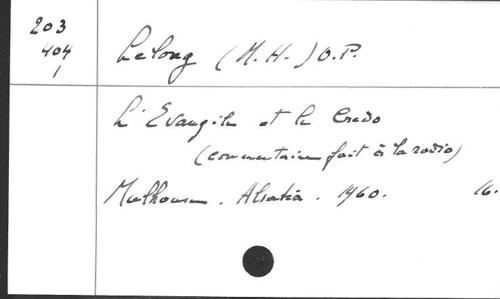 203
404
1
Lelong (M.H.) O.P.
L'Evangile et le Credo
(commentaire fait à la radio)
Mulhouse. Alsatia. 1960. 16.